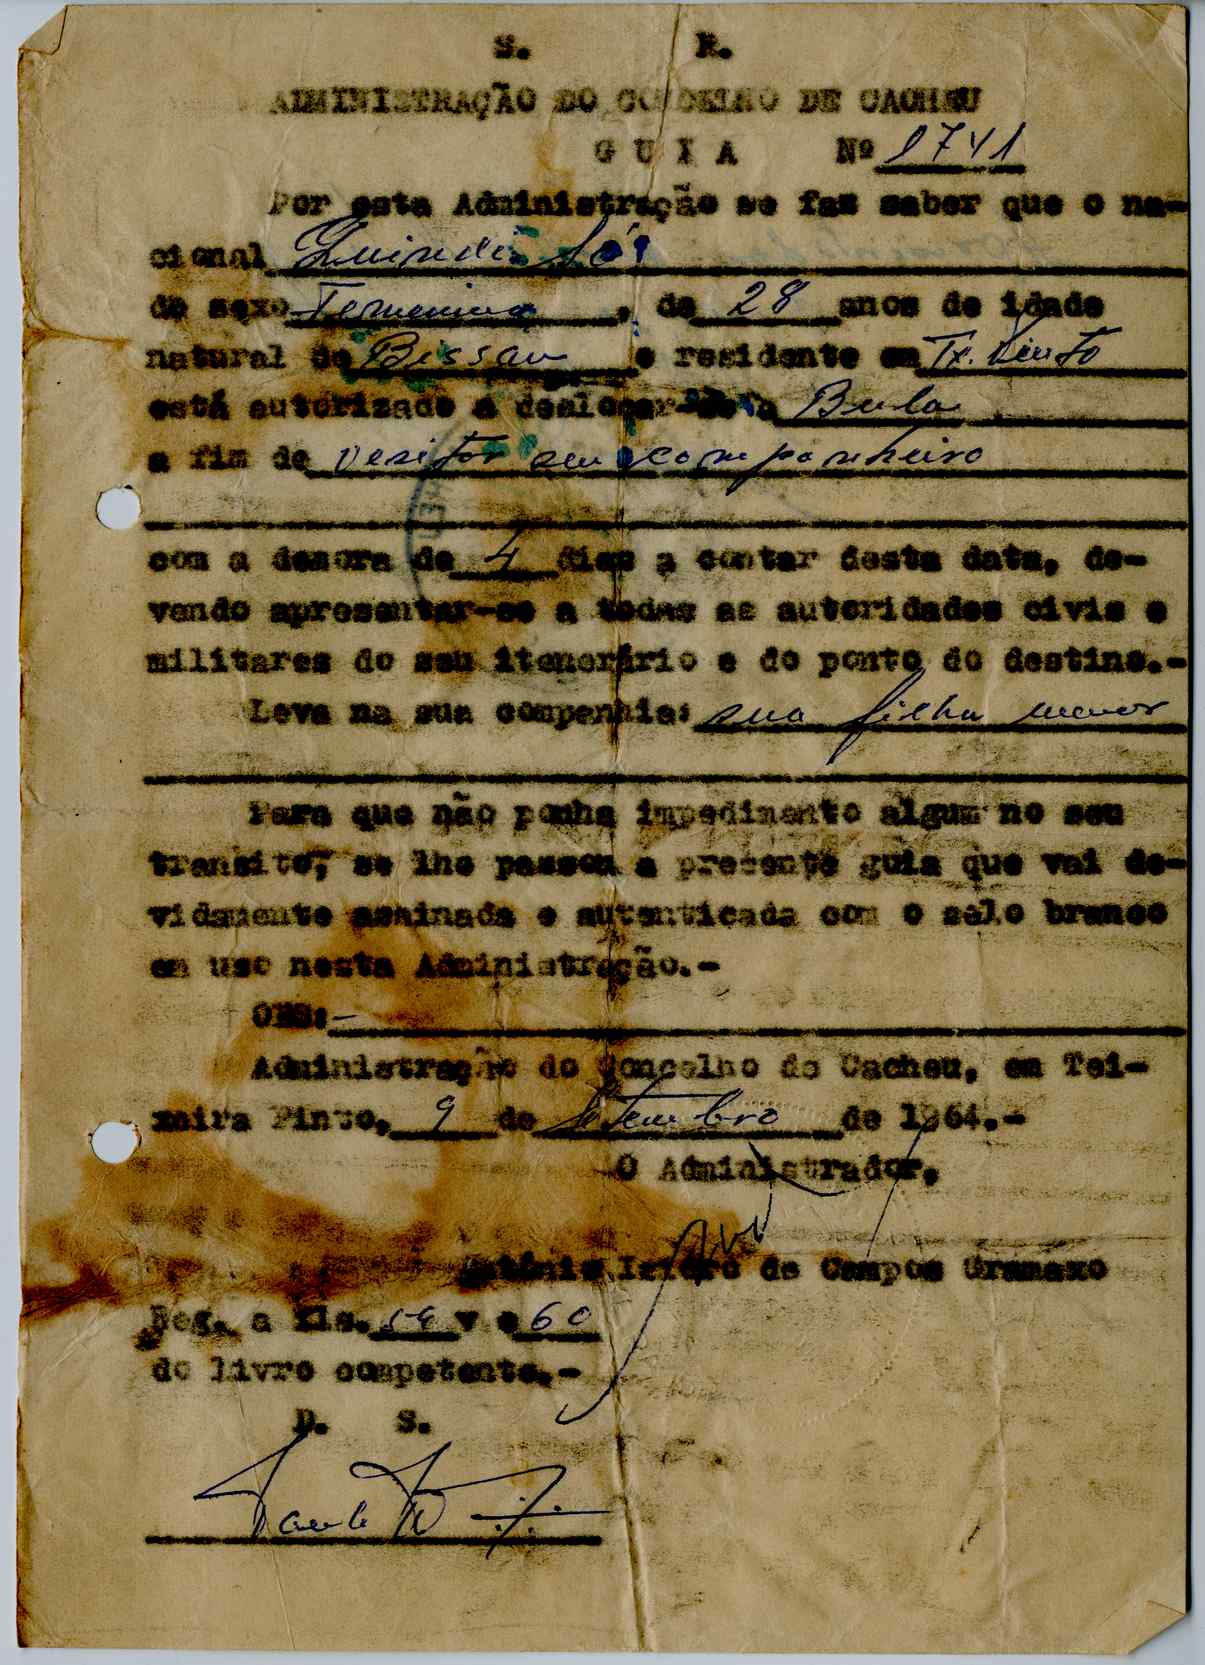 S. R.
ADMINISTRAÇÃO DO CONCELHO DE CACHEU
G U I A Nº 1741
Por esta Administração se faz saber que o na-
cional
do sexo Femenino, de 28 anos de idade
natural de Bissau e residente em Tx. Pinto
está autorizado a deslocar-se a Bula
a fim de vesitar seu companheiro
com a demora de 4 dias a contar desta data, de-
vendo apresentar-se a todas as autoridades civis e
militares do seu itenerário e do ponto do destino.-
Leva na sua companhia: sua filha menor
Para que não ponha impedimento algum no seu
transito, se lhe passou a presente guia que vai de-
vidamente assinada e autenticada com o selo branco
em uso nesta Administração.-
OBS:-
Administração do Concelho de Cacheu, em Tei-
xeira Pinto, 9 de Setembro de 1964.-
O Administrador,
António Isidro de Campos Gramaxo
Reg. a fls. 59 v e 60
do livro competente.-
D. S.